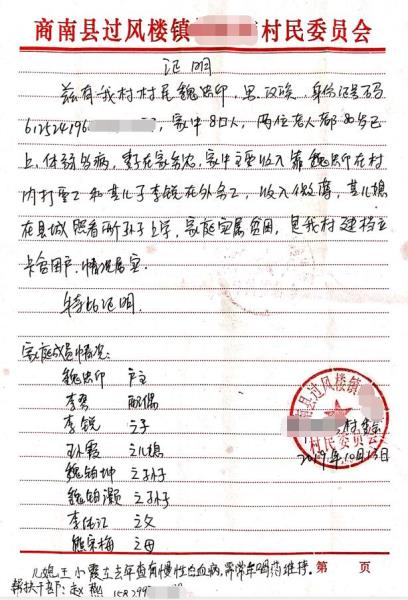 商南县过风楼镇 村民委员会
证明
兹有我村村民魏忠印，男，汉族，身份证号码
612524196 ，家中8口人，两位老人都80岁已
上，体弱多病，妻在家务农，家中主要收入靠魏忠印在村
内打零工和其儿子李锐在外务工，收入微薄，其儿媳
在县城照看两孙子上学，家庭实属贫困，是我村建档立
卡贫困户，情况属实。
特此证明。
家庭成员情况：
魏忠印 户主
李 配偶
李锐 之子
王小霞 之儿媳
魏铂坤 之孙子
魏铂灏 之孙子
李 江 之父
熊宗梅 之母
商南县过风楼镇
村民委员会
村
2019年10月13日
儿媳王小霞在去年查有慢性白血病，常年吃药维持。
第 页
帮扶干部：赵 158299